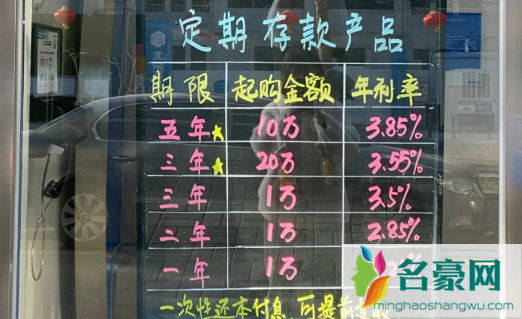 定期存款产品
期限 起购金额 年利率
五年★ 10万 3.85%
三年★ 20万 3.55%
三年 1万 3.5%
二年 1万 2.85%
一年 1万
一次性还本付息,可提前
名豪网
minghaoshangwu.com